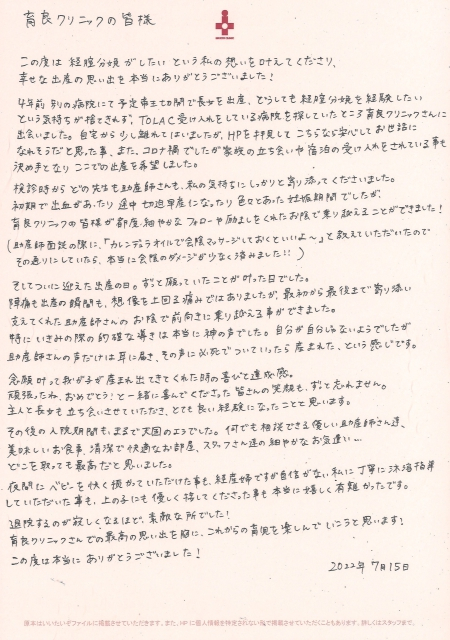 育良クリニックの皆様
この度は 経腟分娩がしたい という私の想いを叶えてくださり、
幸せな出産の思い出を本当にありがとうございました！
4年前 別の病院にて予定帝王切開で長女を出産、どうしても経腟分娩を経験したい
という気持ちが捨てきれず、TOLAC受け入れをしている病院を探していたところ育良クリニックさんに
出会いました。自宅から少し離れてはいましたが、HPを拝見して こちらなら安心して お世話に
なれそうだと思った事、また、コロナ禍でしたが家族の立ち会いや宿泊の受け入れをされている事も
決め手となり ここでの出産を希望しました。
検診時からどの先生も助産師さんも、私の気持ちに しっかりと寄り添ってくださいました。
初期で出血があったり 途中 切迫早産になったり 色々とあった 妊娠期間でしたが、
育良クリニックの皆様が都度、細やかな フォローや励ましをくれたお陰で乗り越えることができました！
(助産師面談の際に、「カレンデュラオイルで会陰マッサージしておくといいよ〜」と教えていただいたので
その通りにしていたら、本当に会陰のダメージが少なく済みました!! )
そしてついに迎えた出産の日。ずっと願っていたことが叶った日でした。
陣痛も出産の瞬間も、想像を上回る痛みではありましたが、最初から最後まで寄り添い
支えてくれた助産師さんのお陰で前向きに乗り越える事ができました。
特にいきみの際の的確な導きは本当に神の声でした。自分が自分じゃないようでしたが
助産師さんの声だけは耳に届き、その声に必死でついていったら 産まれた、という感じです。
念願叶って我が子が産まれ出てきてくれた時の喜びと達成感。
頑張ったね、おめでとう！と一緒に喜んでくださった 皆さんの笑顔も、ずっと忘れません。
主人と長女も立ち会いさせていただき、とても良い経験になったことと思います。
その後の入院期間も、まるで天国のようでした。何でも相談できる優しい助産師さん達、
美味しいお食事、清潔で快適なお部屋、スタッフさん達の細やかなお気遣い…
どこを取っても最高だと思いました。
夜間に ベビーを快く預かっていただけた事も、経産婦ですが自信がない私に丁寧に沐浴指導
していただいた事も、上の子にも優しく接してくださった事も本当に嬉しく有難かったです。
退院するのが寂しくなるほど、素敵な所でした！
育良クリニックさんでの最高の思い出を胸に、これからの育児を楽しんでいこうと思います！
この度は本当に ありがとうございました！
2022年 7月15日
原本はいいたいぞファイルに掲載させていただきます。また、HPに個人情報を特定されない形で掲載させていただくこともあります。詳しくはスタッフまで。